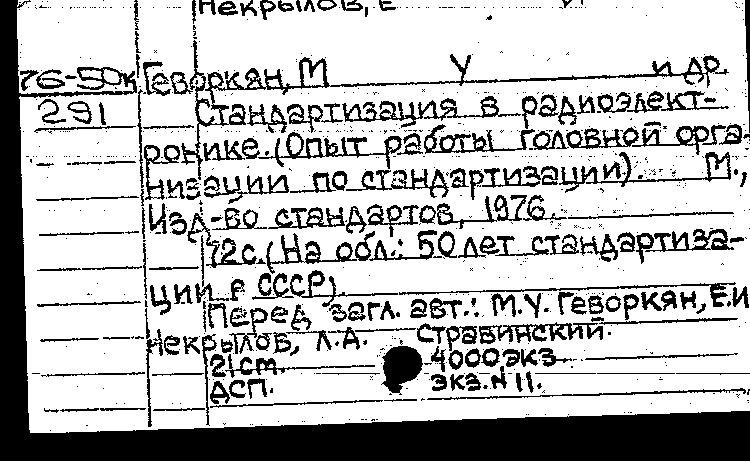 Некрылов, Е
76-50к Геворкян, М У и др.
291 Стандартизация в радиоэлект-
ронике. (Опыт работы головной орга-
низации по стандартизации). М.,
Изд-во стандартов, 1976.
72с. (На обл.: 50 лет стандартиза-
ции в СССР).
Перед загл. авт.: М.У. Геворкян, Е.И
Некрылов, Л.А. Стравинский.
21см. 4000 экз.
ДСП. экз. N 11.